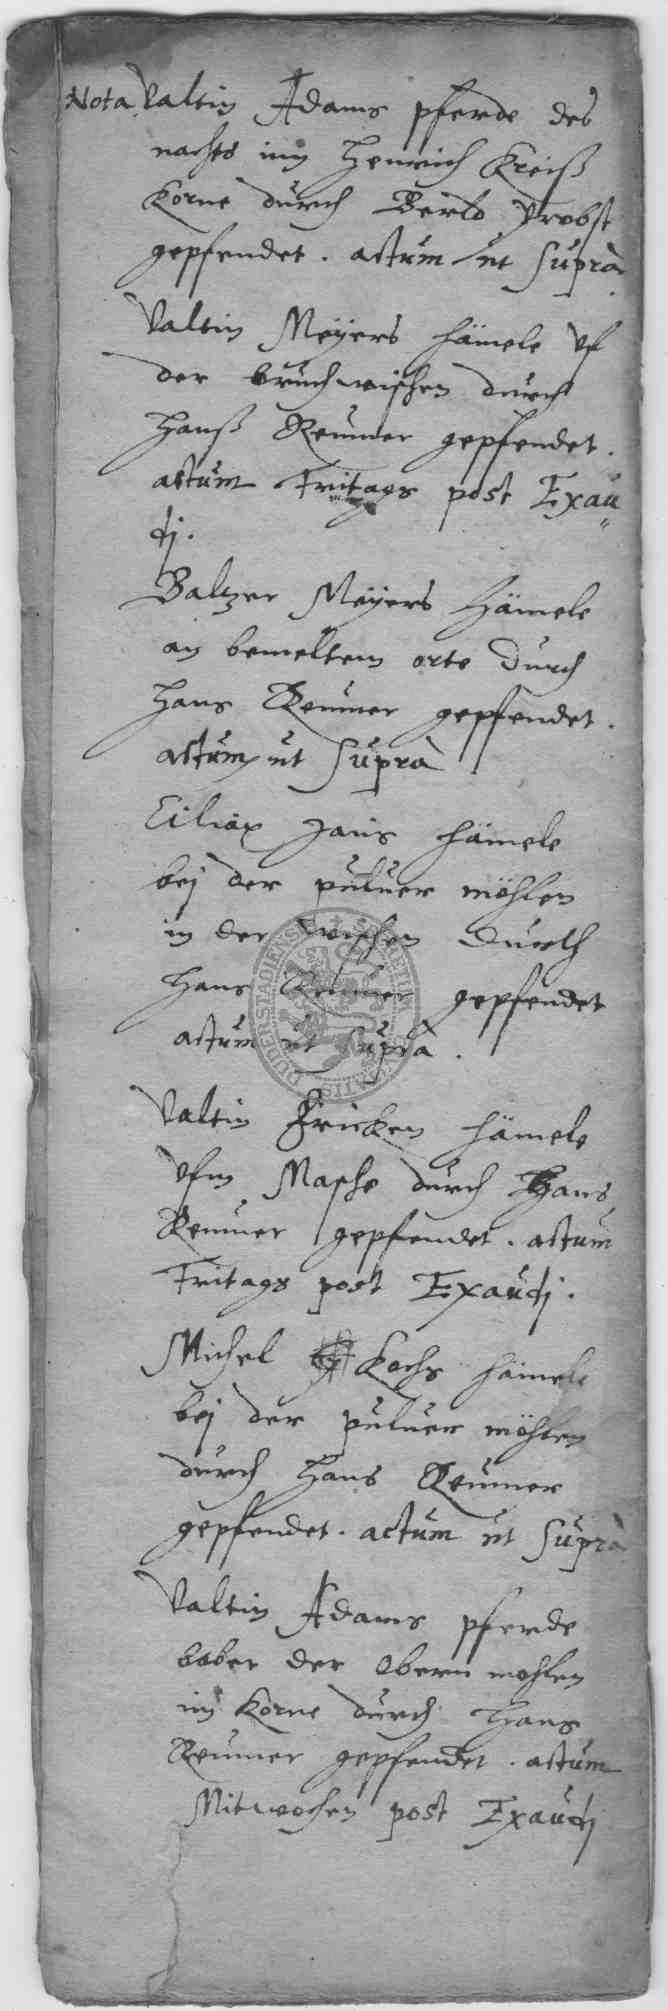 Nota Valtin Adams pferde des
nachts inn Henrich Kreiß
Korne durch Berld Probst
gepfendet. actum ut Suprà.
Valtin Meÿers hämele vf
der bruchwischen durch
Hanß Reumer gepfendet.
actum Fritags post Exau
dj.
Baltzer Meÿers Hämele
an bemeltem orte durch
Hans Reumer gepfendet.
actum ut Suprà
Ciliax Jans hämele
bej der puluer möhlen
in der wischen durch
Hans Reumer gepfendet
actum ut Suprà.
Valtin Fricken hämele
vfm Masche durch Hans
Reumer gepfendet. actum
Fritags post Exaudj.
Michel Kochs hämele
bej der puluer möhlen
durch Hans Reumer
gepfendet. actum ut Suprà
Valtin Adams pferde
bober der Obern mohlen
im Korne durch Hans
Reumer gepfendet. actum
Mitwochen post Exaudj